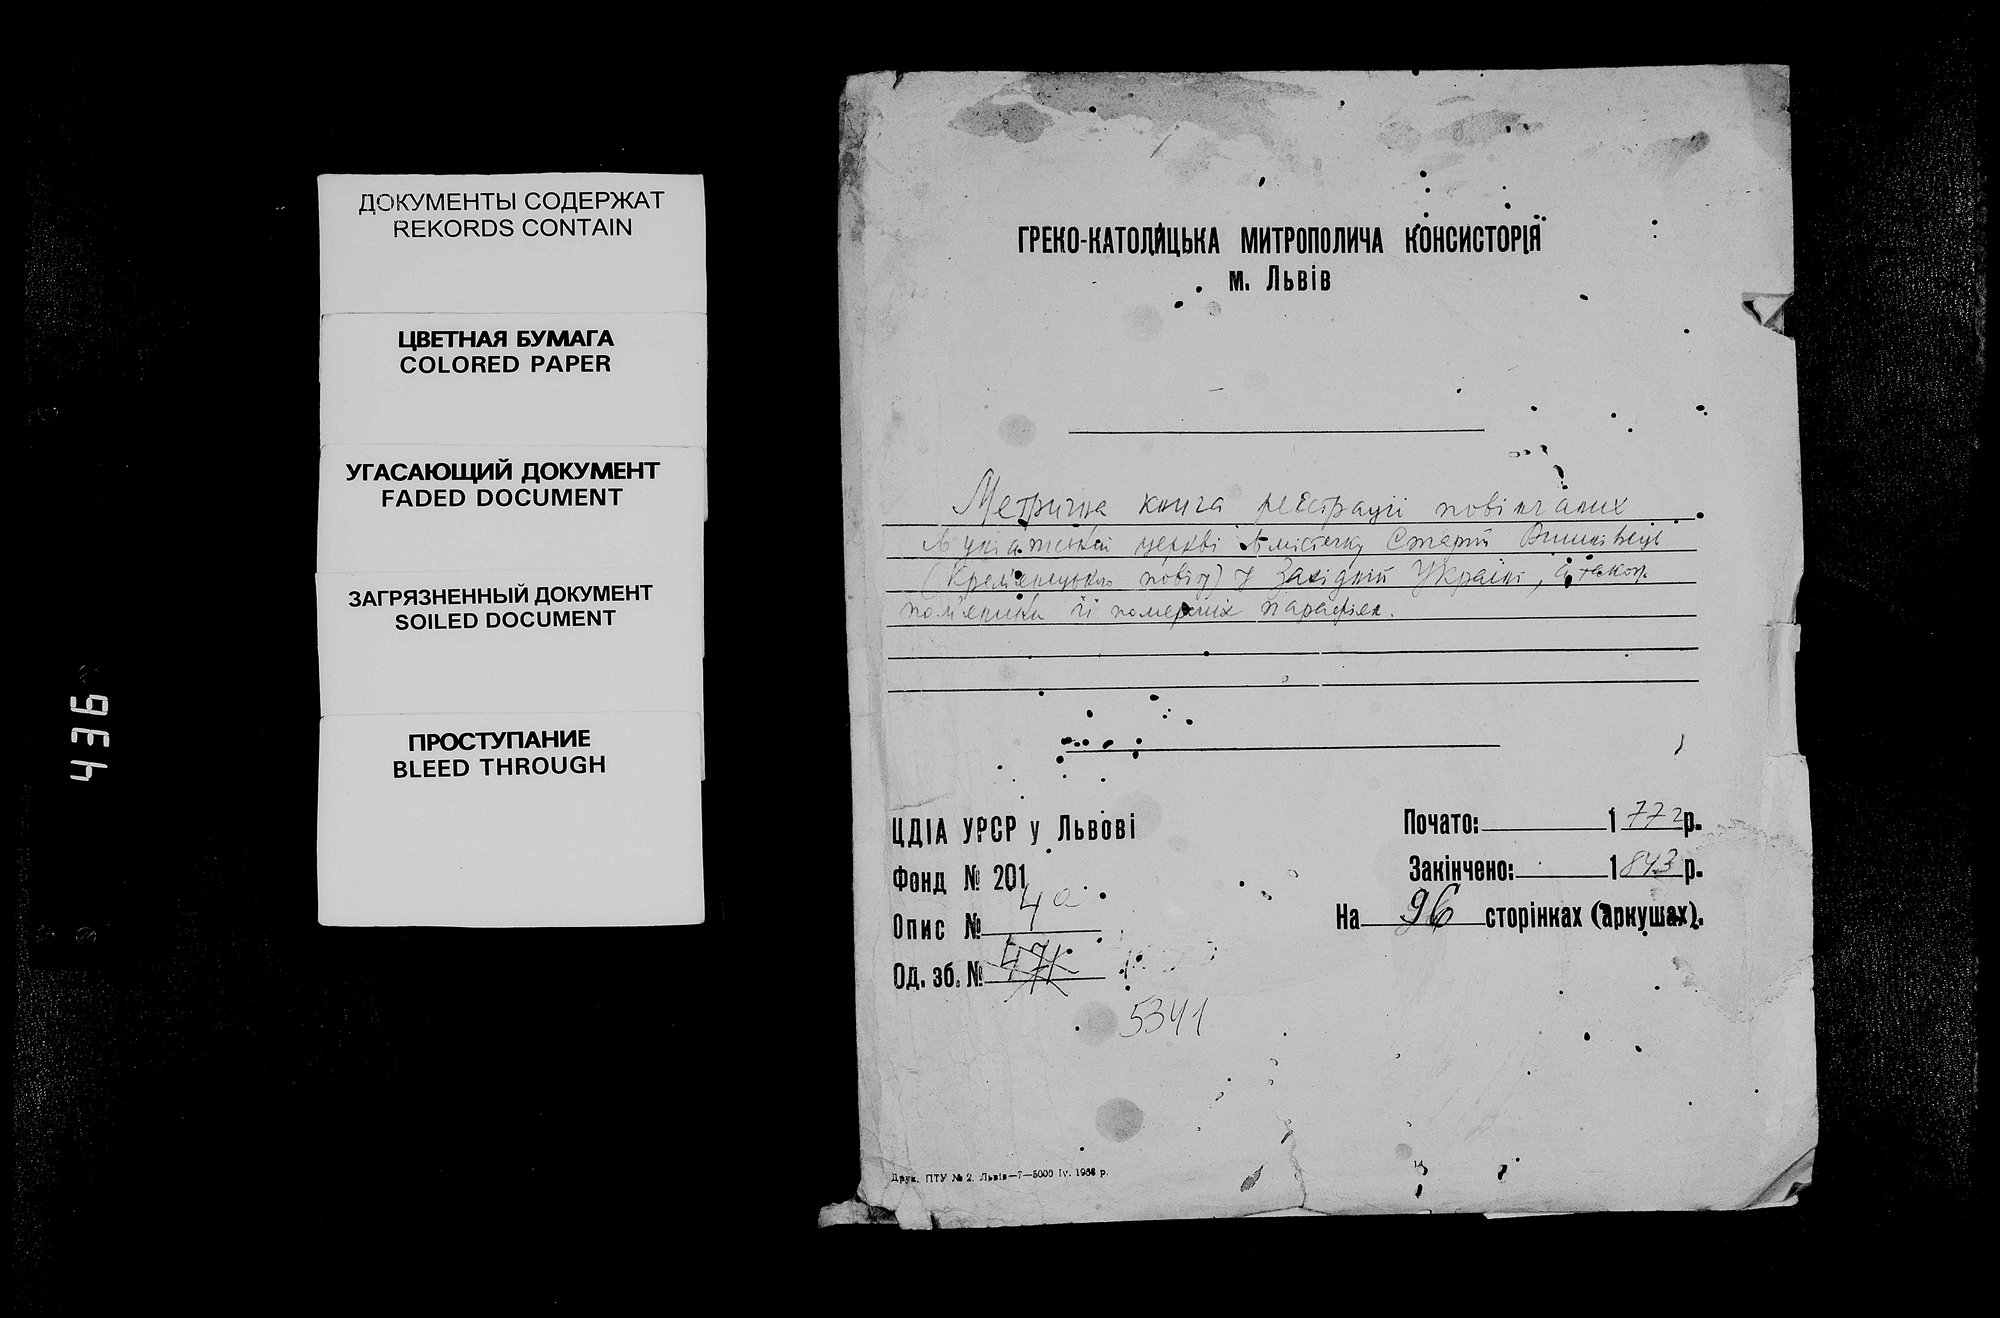 ДОКУМЕНТЫ СОДЕРЖАТ
REKORDS CONTAIN
ЦВЕТНАЯ БУМАГА
COLORED PAPER
УГАСАЮЩИЙ ДОКУМЕНТ
FADED DOCUMENT
ЗАГРЯЗНЕННЫЙ ДОКУМЕНТ
SOILED DOCUMENT
ПРОСТУПАНИЕ
BLEED THROUGH
436
ГРЕКО-КАТОЛИЦЬКА МИТРОПОЛИЧА КОНСИСТОРІЯ
м. Львів
Метрична книга реєстрації повінчаних
в уніатській церкві в містечку Старій Вишнівеці
(Крем'янецького повіту) у Західній Україні, а також
пом'яники її померлих парафіян.
ЦДІА УРСР у Львові
Фонд № 201
Опис № 4а
Од. зб. № 471
5341
Почато: 1772 р.
Закінчено: 1843 р.
На 96 сторінках (аркушах).
Друк. ПТУ № 2. Львів—7—5000 IV. 1966 р.